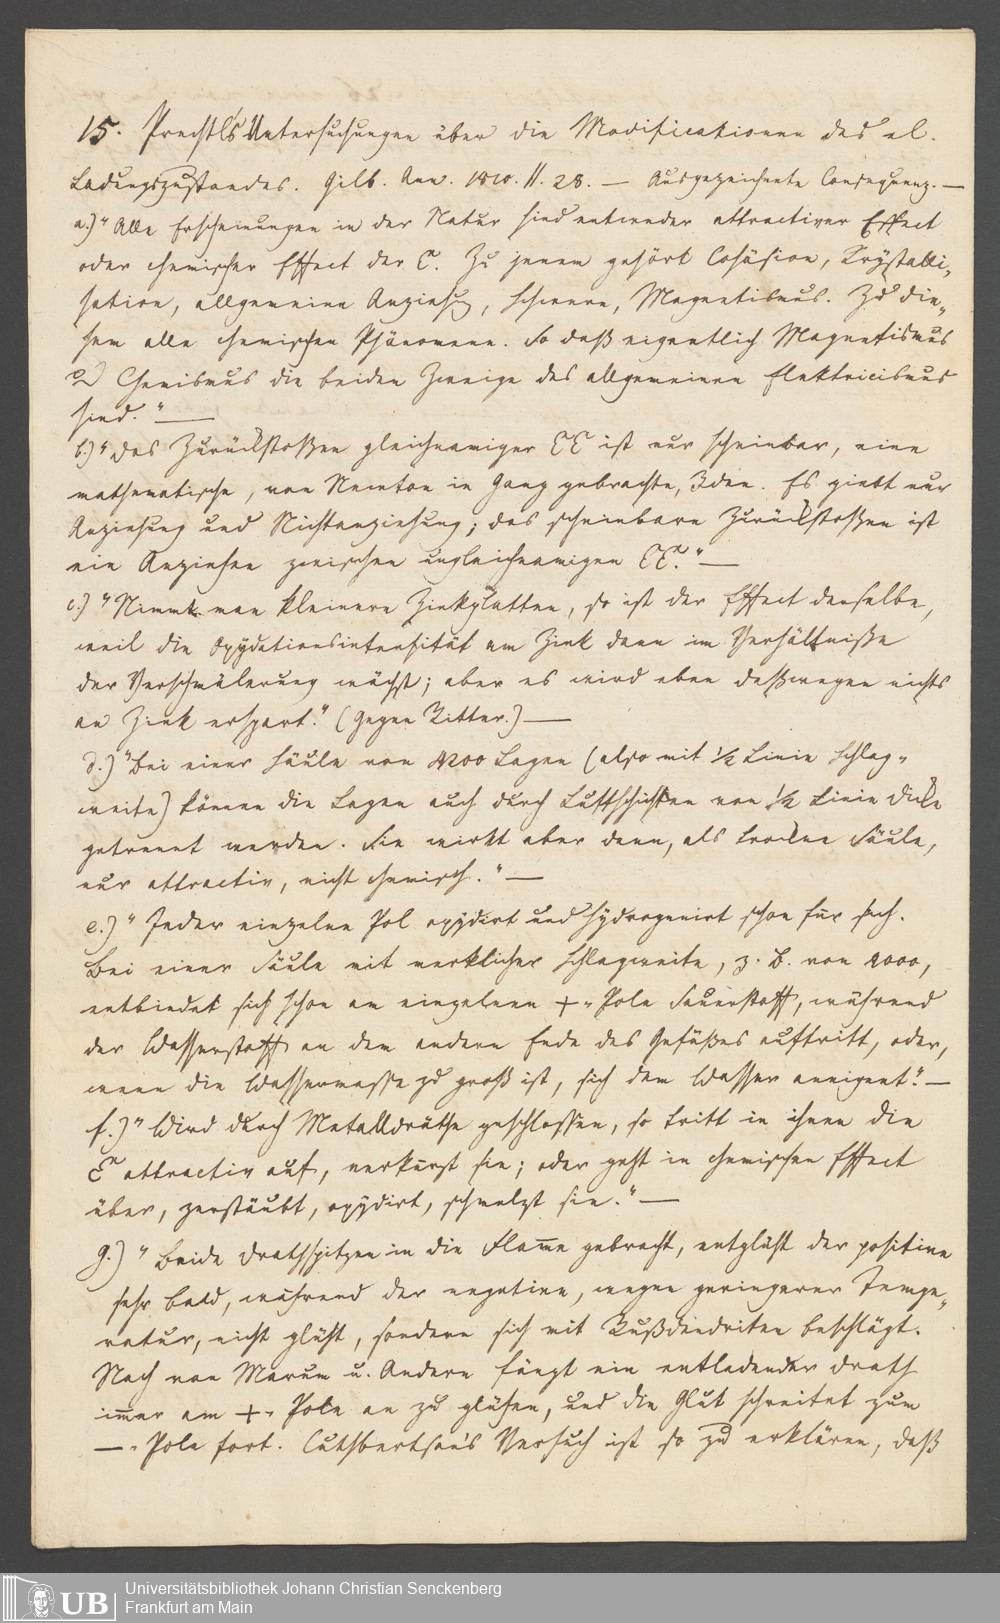 15. Prechtl's Untersuchungen über die Modificationen des el.
Ladungszustandes. Gilb. Ann. 1810. II. 28. — Ausgezeichnete Consequenz. —
a.) "Alle Erscheinungen in der Natur sind entweder attractiver Effect
oder chemischer Effect der E. Zu jenem gehört Cohäsion, Krystalli-
sation, allgemeine Anziehg, Schwere, Magnetismus. Zu die-
sem alle chemischen Phänomene. So daß eigentlich Magnetismus
u Chemismus die beiden Zweige des allgemeinen Elektricismus
sind." —
b.) "Das Zurückstoßen gleichnamiger EE ist nur scheinbar, eine
mathematische, von Newton in Gang gebrachte, Idee. Es giebt nur
Anziehung und Nichtanziehung; das scheinbare Zurückstoßen ist
ein Anziehen zwischen ungleichnamigen EE." —
c.) "Nimmt man kleinere Zinkplatten, so ist der Effect derselbe,
weil die Oxydationsintensität am Zink dann im Verhältniße
der Verschmälerung wächst; aber es wird eben deßwegen nichts
an Zink erspart." (Gegen Ritter.) —
d.) "Bei einer Säule von 4200 Lagen (also mit 1/2 Linie Schlag-
weite) können die Lagen auch durch Luftschichten von 1/2 Linie Dicke
getrennt werden. Sie wirkt aber dann, als trockne Säule,
nur attractiv, nicht chemisch." —
e.) "Jeder einzelne Pol oxydirt und hydrogenirt schon für sich.
Bei einer Säule mit merklicher Schlagweite, z. B. von 2000,
entbindet sich schon an einzelnen +-Pole Sauerstoff, während
der Wasserstoff an dem andern Ende des Gefäßes auftritt, oder,
wenn die Wassermasse zu groß ist, sich dem Wasser aneignet." —
f.) "Wird durch Metalldräthe geschlossen, so tritt in ihnen die
E attractiv auf, verkürzt sie; oder geht in chemischen Effect
über, zerstäubt, oxydirt, schmelzt sie." —
g.) "Beide Drathspitzen in die Flam̅e gebracht, entglüht der positive
sehr bald, während der negative, wegen geringerer Tempe-
ratur, nicht glüht, sondern sich mit Rußdendriten beschlägt.
Nach van Marum u. Andern fängt ein entladender Drath
im̅er am +-Pole an zu glühen, und die Glut schreitet zum
—-Pole fort. Cuthbertson's Versuch ist so zu erklären, daß
UB Universitätsbibliothek Johann Christian Senckenberg
Frankfurt am Main